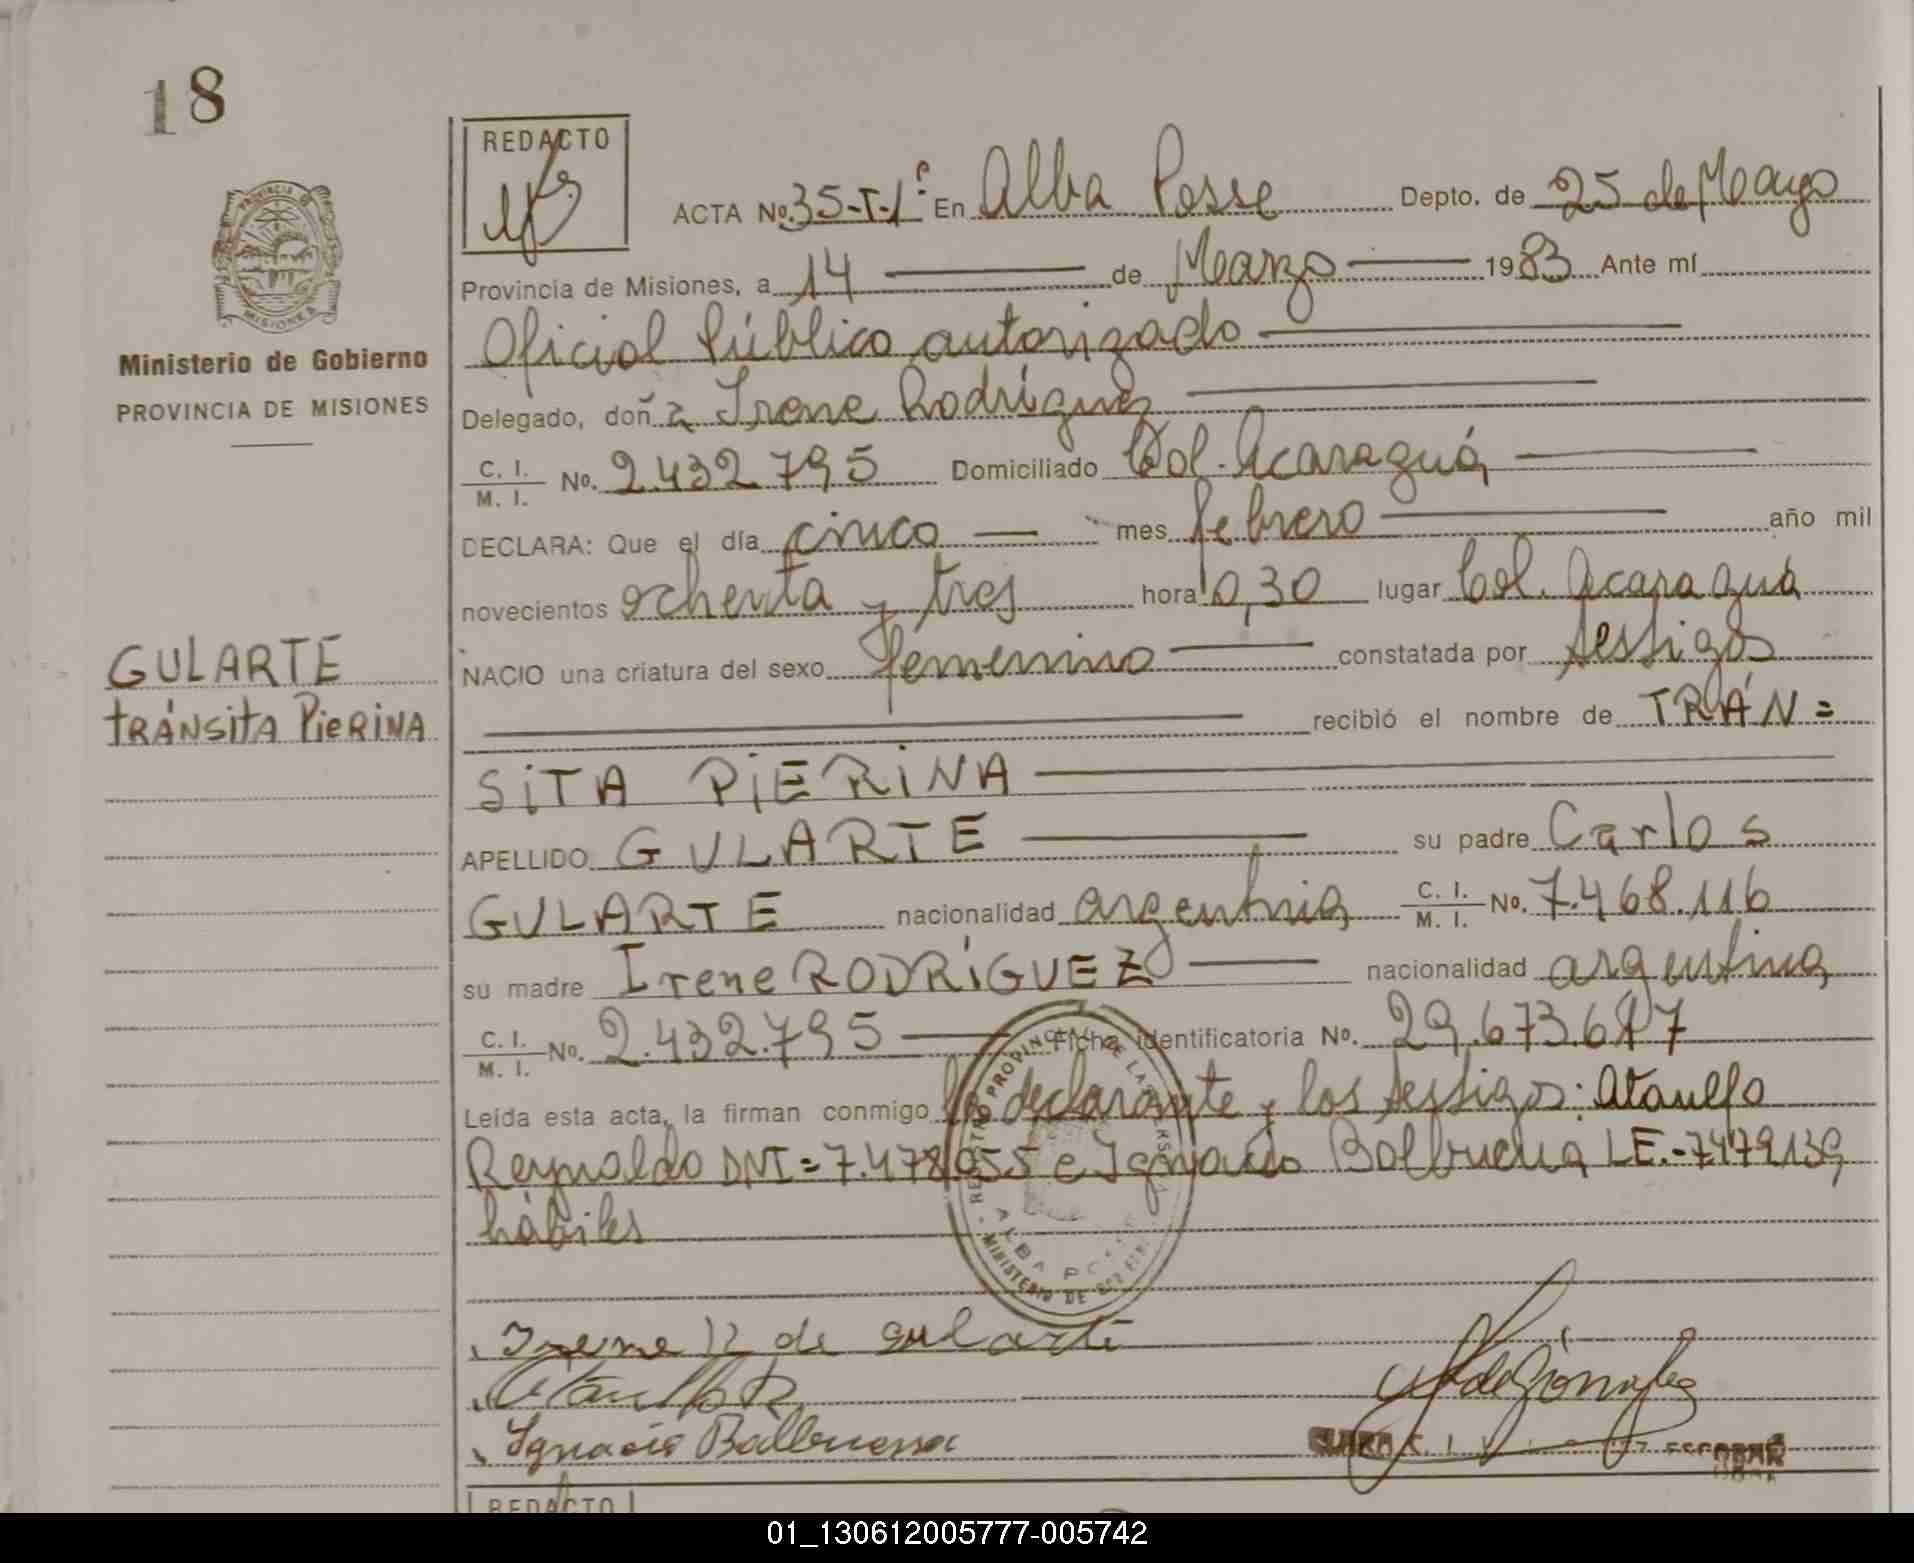 18
REDACTO
ACTA No. 35-T-1º En Alba Posse Depto. de 25 de Mayo
Provincia de Misiones, a 14 de Marzo 1983 Ante mí
Oficial Público autorizado
Delegado, doña Irene Rodríguez
C. I. / M. I. No. 2.432.795 Domiciliado Col. Acaraguá
DECLARA: Que el día cinco mes febrero año mil
novecientos ochenta y tres hora 10,30 lugar Col. Acaraguá
NACIO una criatura del sexo femenino constatada por testigos
recibió el nombre de TRÁN=
SITA PIERINA
APELLIDO GULARTE su padre Carlos
GULARTE nacionalidad argentina C. I. / M. I. No. 7.468.116
su madre Irene RODRÍGUEZ nacionalidad argentina
C. I. / M. I. No. 2.432.795 Ficha identificatoria No. 29.673.617
Leída esta acta, la firman conmigo la declarante y los testigos: Ataulfo
Reynaldo DNI=7.478.055 e Ignacio Balbuena LE.-7479139
hábiles
Irene R de gularte
Ignacio Balbuena
Ministerio de Gobierno
PROVINCIA DE MISIONES
GULARTE
TRÁNSITA PIERINA
PROVINCIA DE MISIONES
REGISTRO PROVINCIAL DE LAS PERSONAS
ALBA POSSE
MINISTERIO DE GOBIERNO
REDACTO
01_130612005777-005742